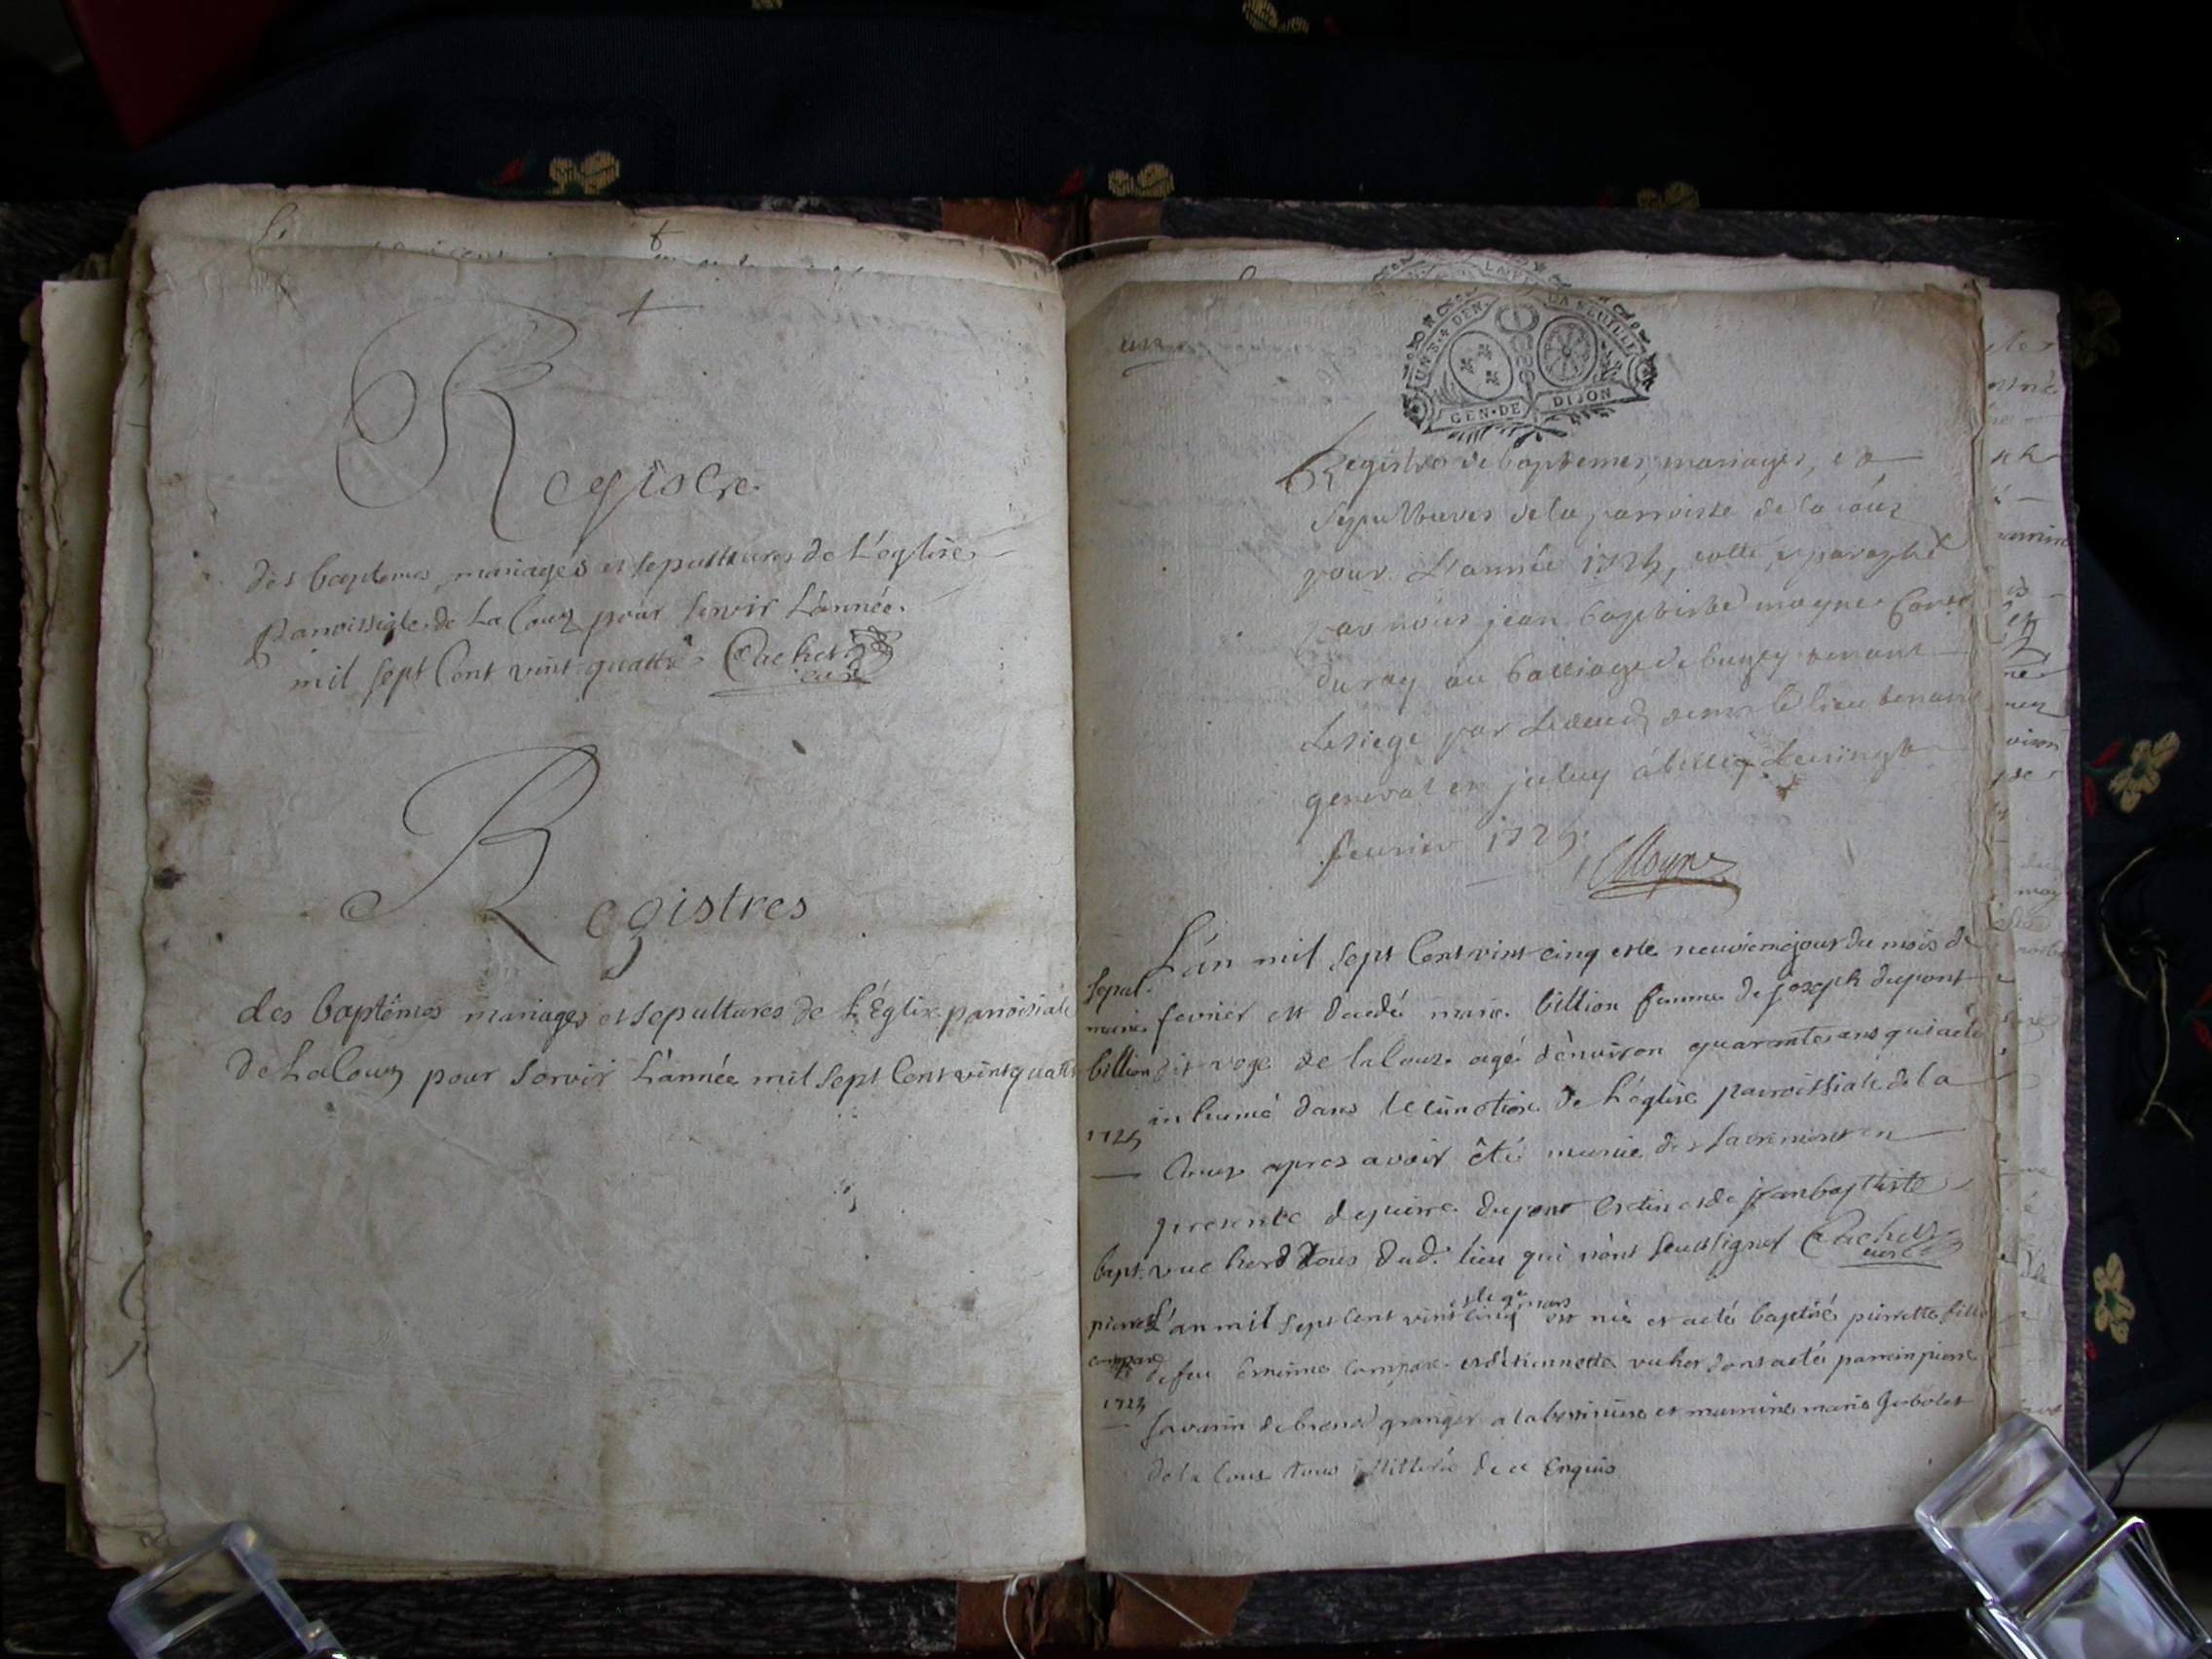 Registre
des baptemes, mariages et sepultures de L'eglise
parroissiale de La Couz pour servir L'année
mil sept Cent vint quattre Cachet
curé
Registres
des baptêmes mariages et sepultures de L'Eglise parroissiale
de La Couz pour servir L'année mil sept Cent vint quattre
UNE 4 DEN. LA FEUILLE
GEN·DE DIJON
Registre de baptemes, mariages, et
sepultures de la parroisse de la Couz
pour L'année 1724, cotté, et paraphé
par nous jean baptiste moyne
du roy au balliage de bugey tenant
Le siege par Le deceds de mr le lieutenant
general en
fevrier
Moyne
L'an mil sept Cent vint-cinq et le neuvieme jour du mois de
sepul. fevrier est decedé marie billion femme de joseph dupont
marie
billion dit voge de la Couz agé d'environ quarante ans qui a eté
inhumé dans le cimetiere de L'église parroissiale de la
1725
Couz apres avoir êté munie des sacremens en
presence de pierre dupont et de jean baptiste
vucherd tous dud. lieu qui n'ont seu signer Cachet
curé
bapt.
et le 9e mars
pierrette L'an mil sept Cent vint cinq est née et a eté baptisé pierrette fille
compare de feu Compare et d'étiennette vucher dont a eté parrein pierre
savarin de granger a la et marreine marie
de la Couz tous illitteré de ce Enquis